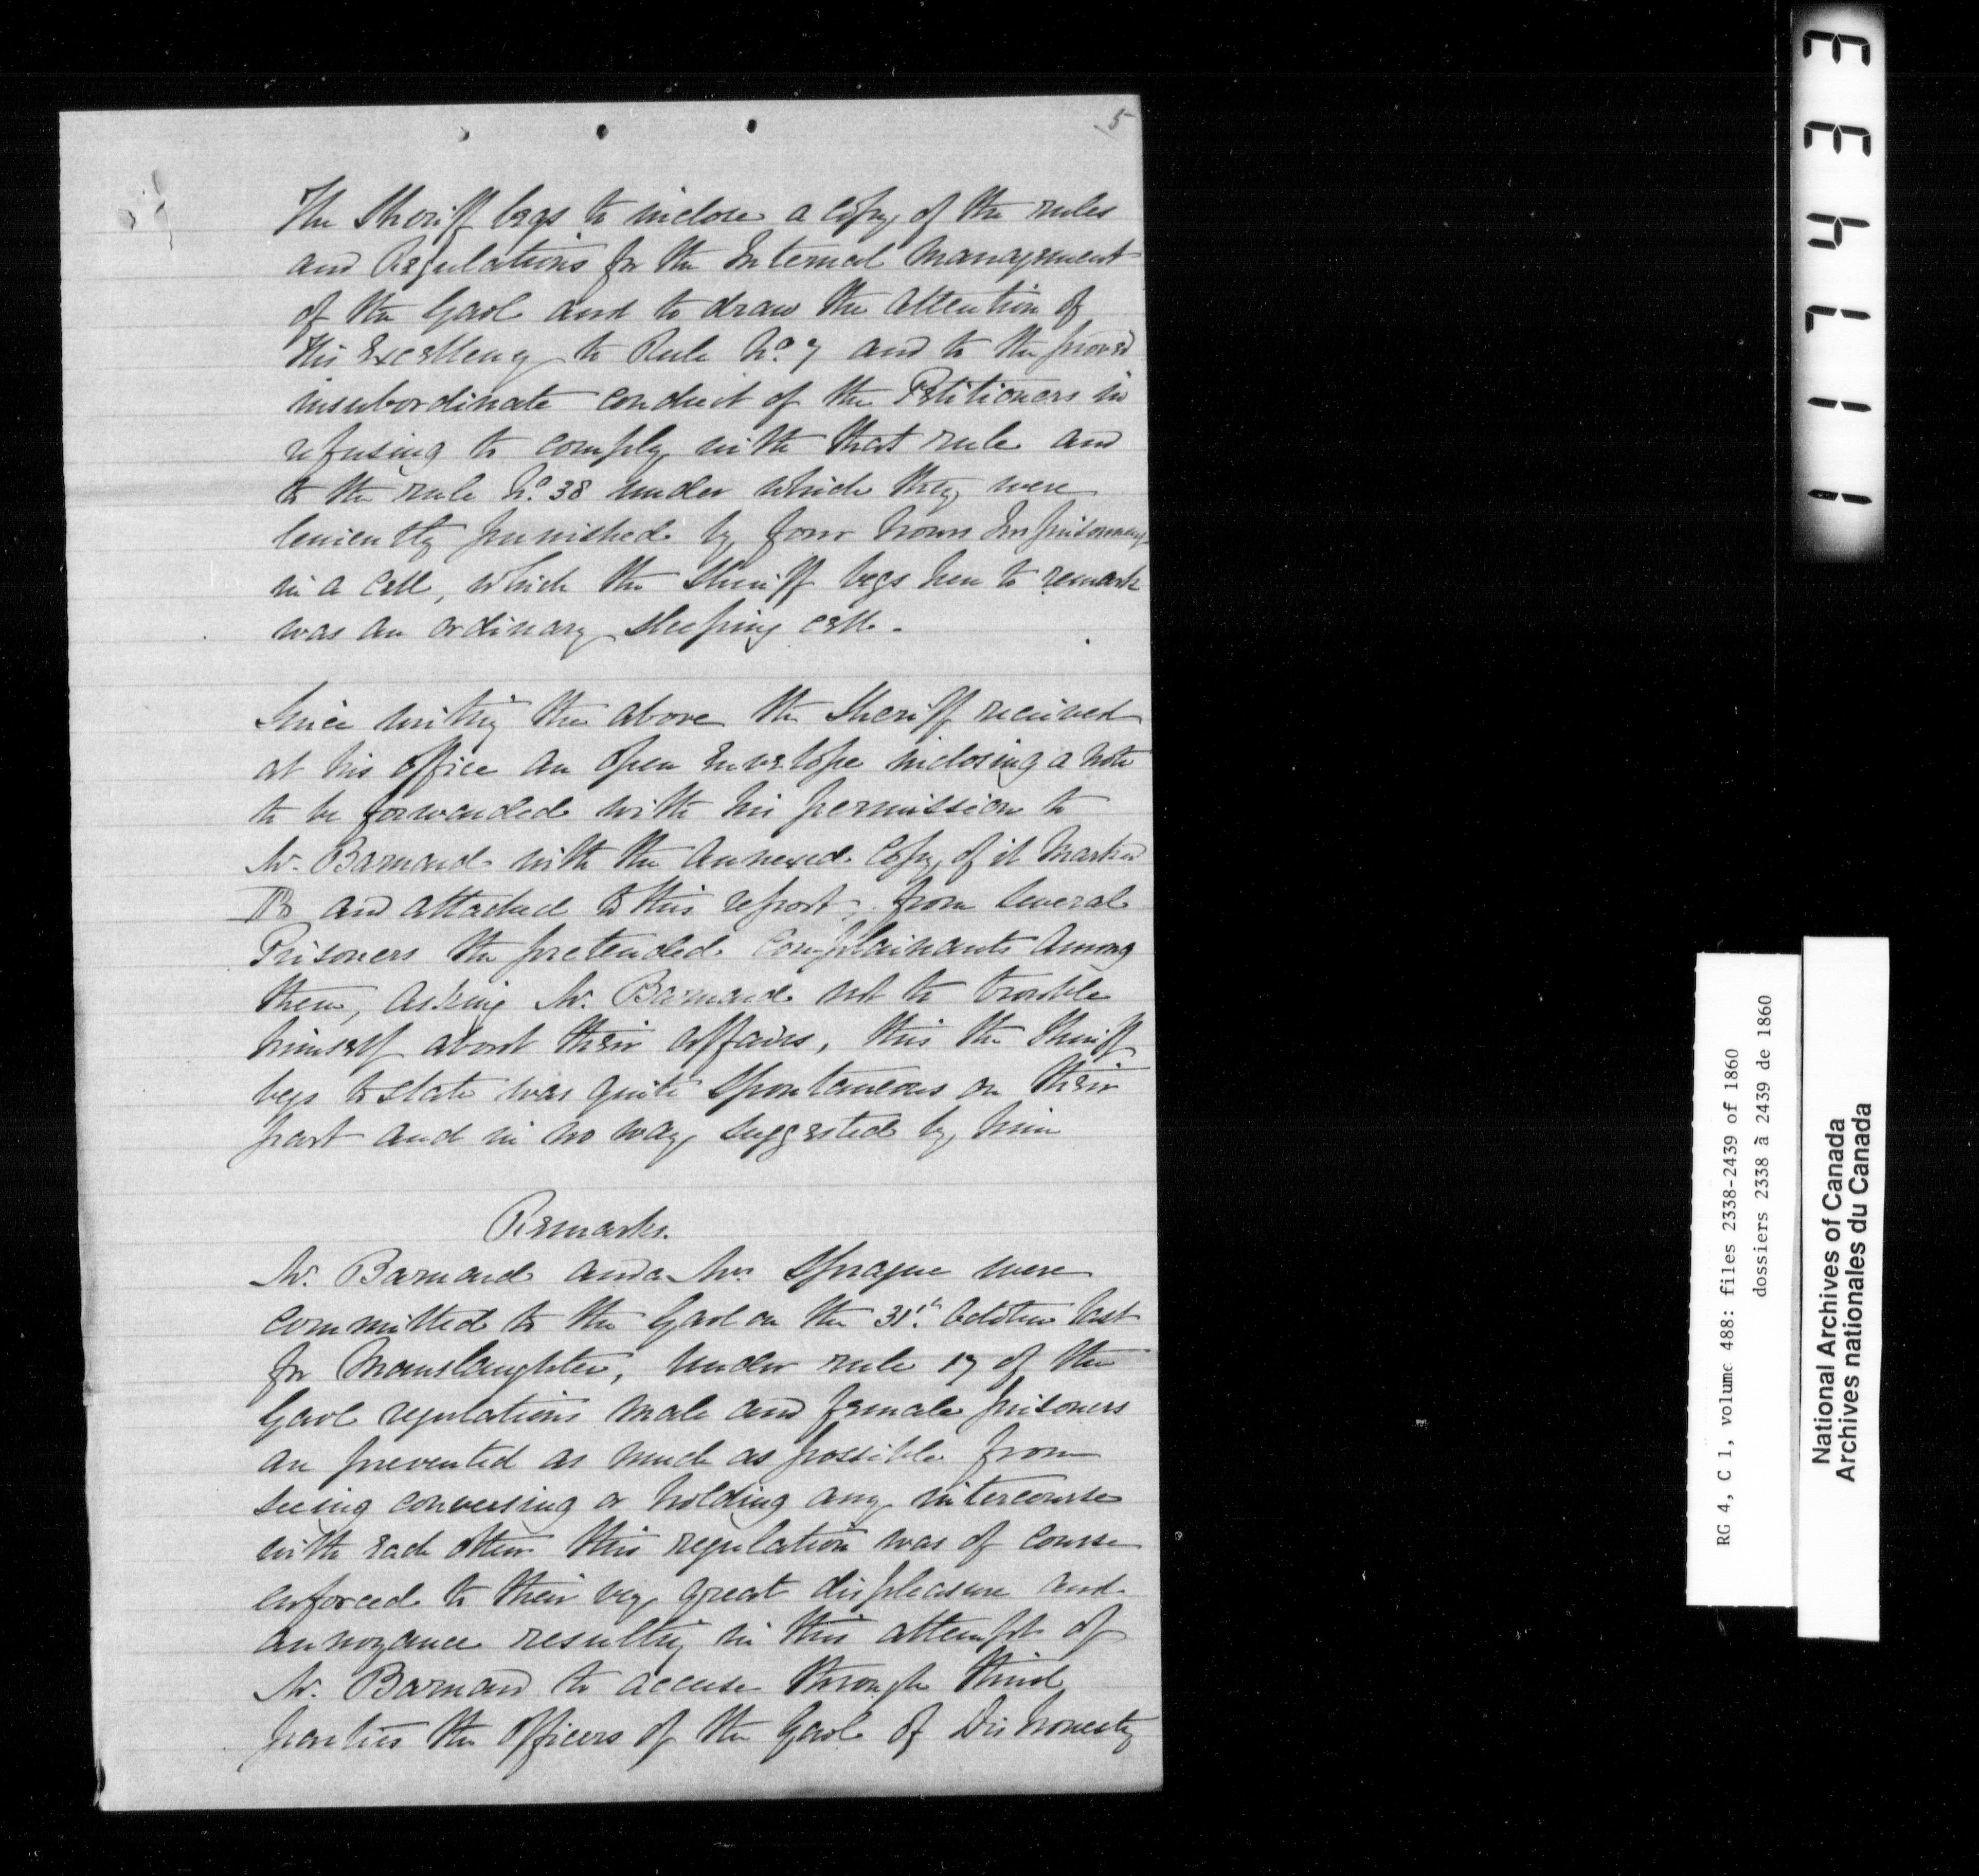 5
The Sheriff begs to inclose a copy of the rules
and Regulations for the Internal Management
of the Gaol and to draw the attention of
His Excellency to Rule No. 7 and to the proved
insubordinate conduct of the Petitioners in
refusing to comply with that rule and
to the rule No. 38 under which they were
leniently punished by four hours Imprisonment
in a cell, which the Sheriff begs here to remark
was an ordinary sleeping cell.
Since writing the above the Sheriff received
at his office an open Envelope inclosing a note
to be forwarded with his permission to
Mr. Barnard with the annexed copy of it marked
B and attached to this report, from several
Prisoners the pretended complainants among
them, asking Mr. Barnard not to trouble
himself about their affairs, this the Sheriff
begs to state was quite spontaneous on their
part and in no way suggested by him
Remarks.
Mr. Barnard and a Mrs Sprague were
committed to the Gaol on the 31st. October last
for Manslaughter, under rule 17 of the
Gaol regulations male and female prisoners
are prevented as much as possible from
seeing conversing or holding any intercourse
with each other this regulation was of course
enforced to their very great displeasure and
annoyance resulting in this attempt of
Mr. Barnard to accuse through third
parties the officers of the Gaol of Dishonesty
334711
RG 4, C 1, volume 488: files 2338-2439 of 1860
dossiers 2338 à 2439 de 1860
National Archives of Canada
Archives nationales du Canada